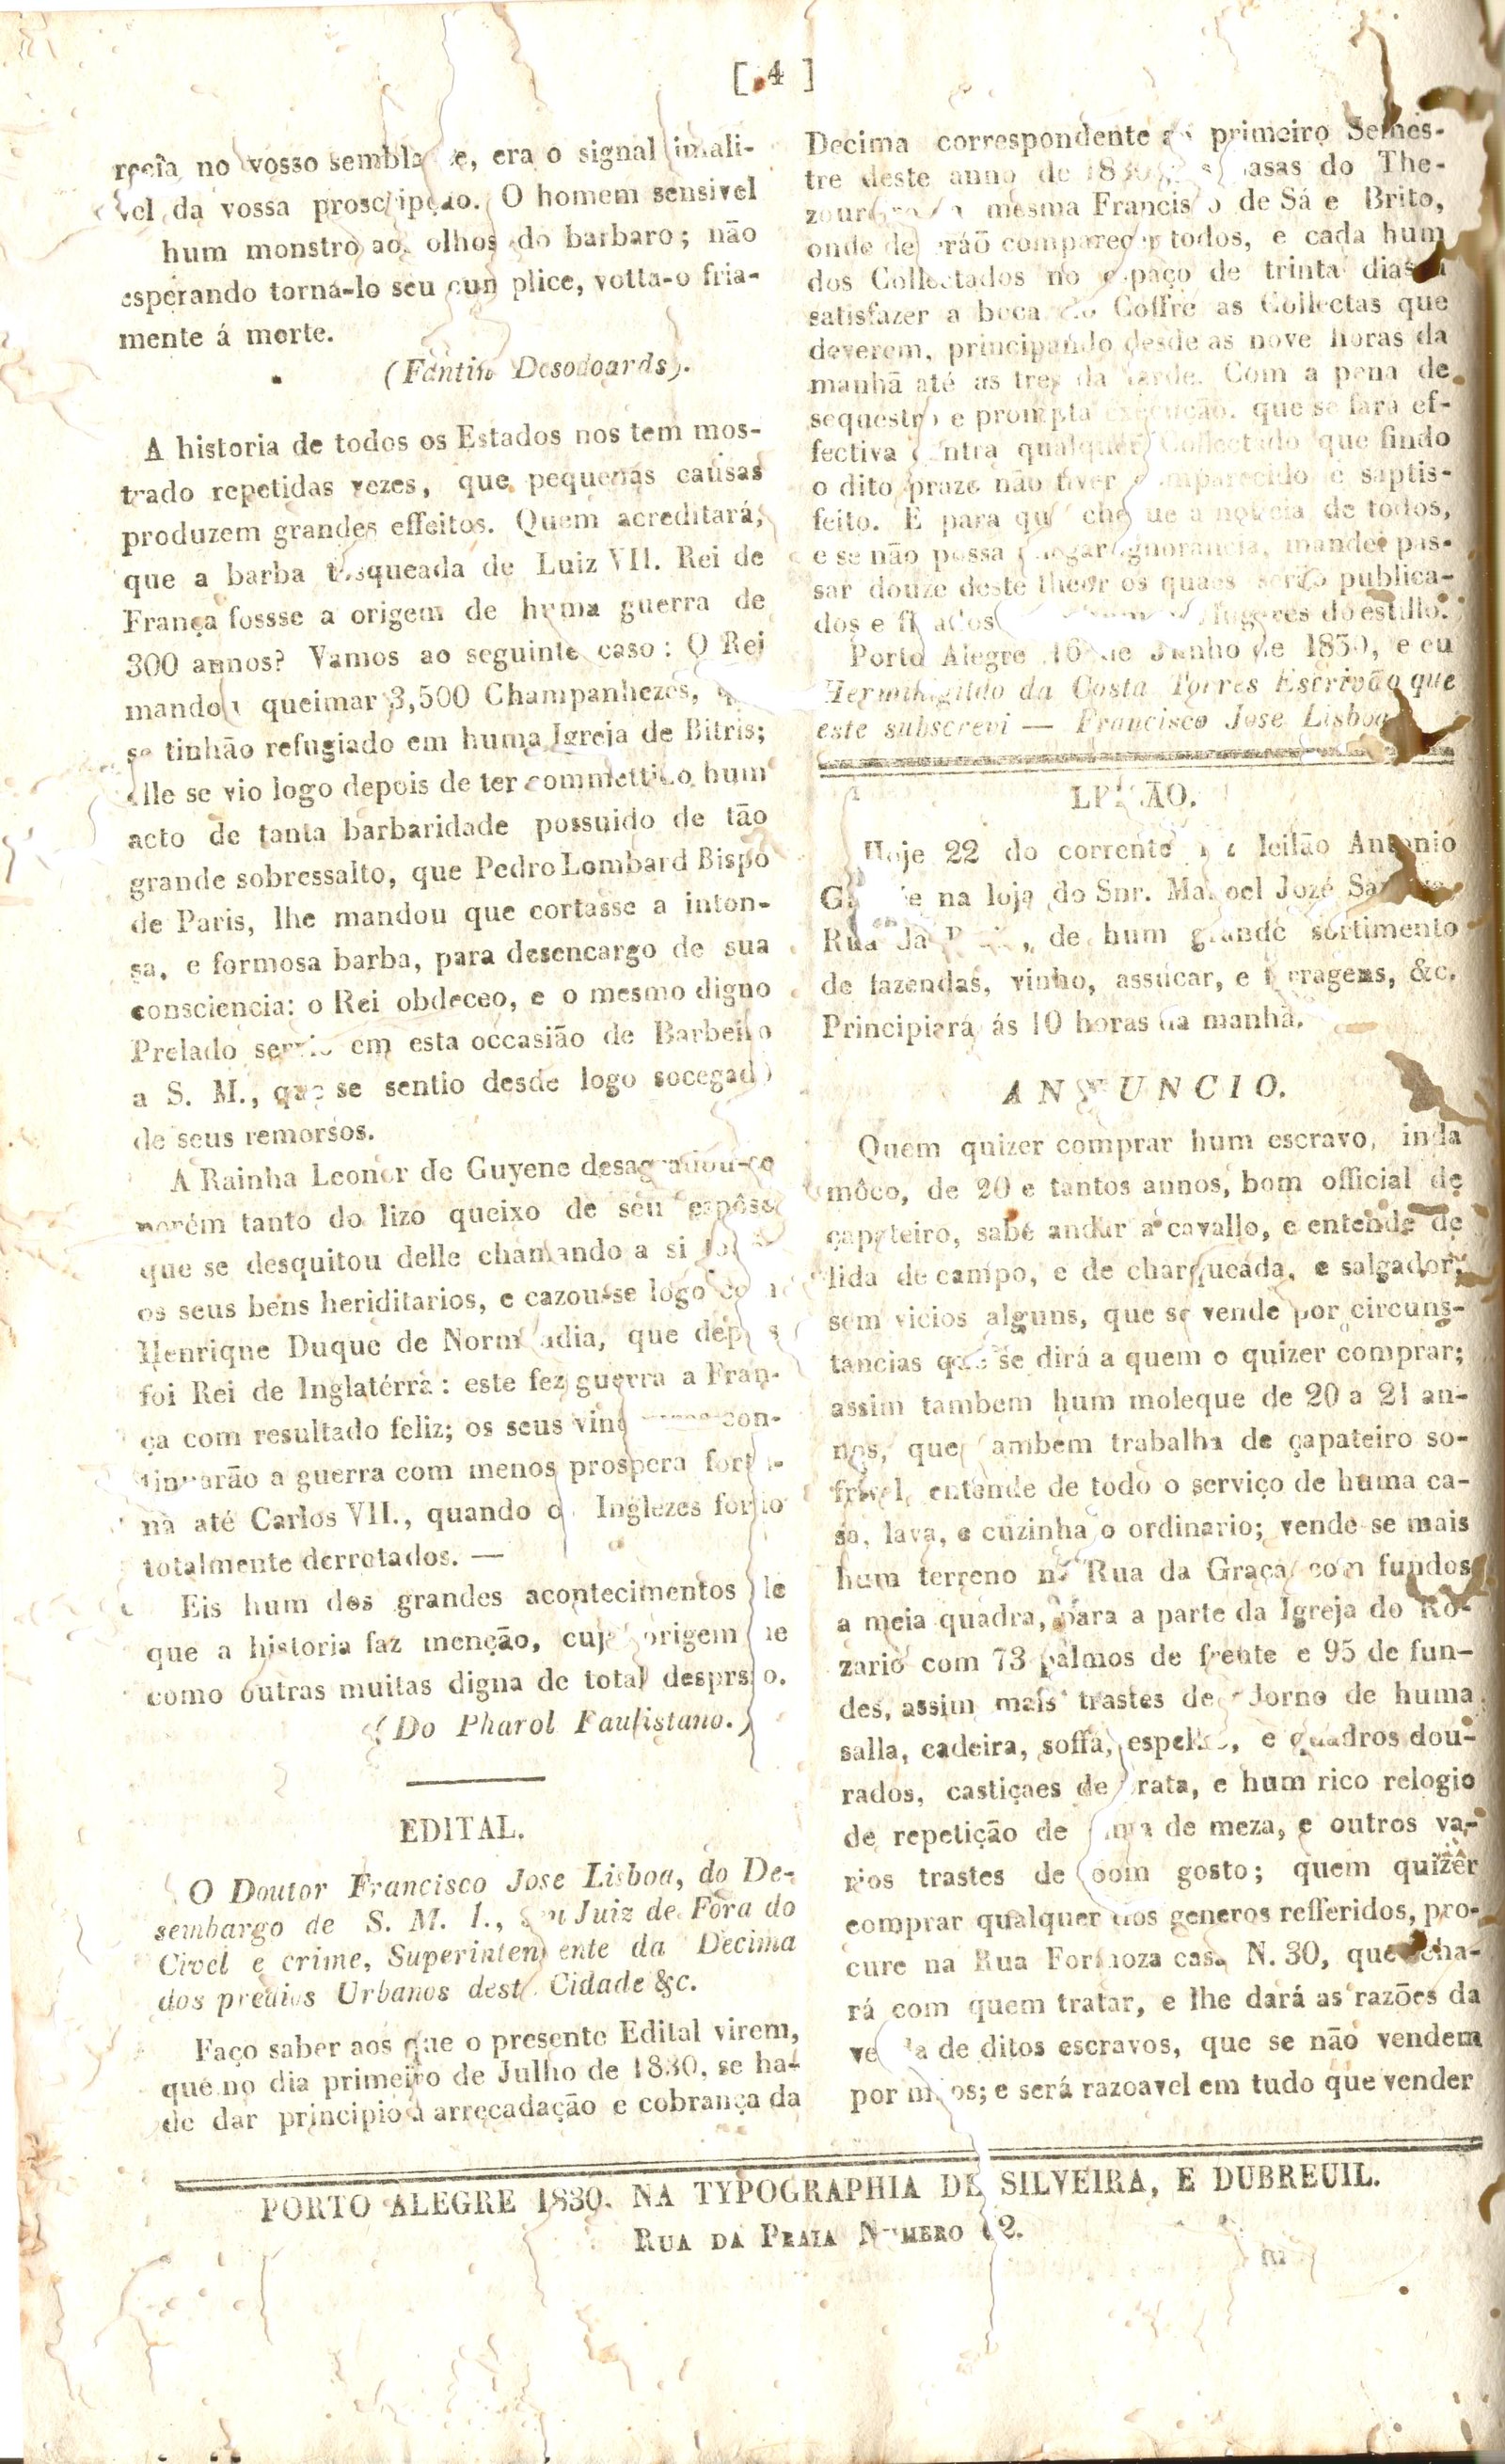 [ 4 ]
recia no vosso sembla e, era o signal imali-
vel da vossa proscripção. O homem sensivel
hum monstro aos olhos do barbaro; não
esperando torna-lo seu cun plice, votta-o fria-
mente á morte.
(Fantin Desodoards).
A historia de todos os Estados nos tem mos-
trado repetidas vezes, que pequenas causas
produzem grandes effeitos. Quem acreditará,
que a barba tosqueada de Luiz VII. Rei de
França fossse a origem de huma guerra de
300 annos? Vamos ao seguinte caso: O Rei
mandou queimar 3,500 Champanhezes,
se tinhão refugiado em huma Igreja de Bitris;
elle se vio logo depois de ter commettido hum
acto de tanta barbaridade possuido de tão
grande sobressalto, que Pedro Lombard Bispo
de Paris, lhe mandou que cortasse a inton-
sa, e formosa barba, para desencargo de sua
consciencia: o Rei obdeceo, e o mesmo digno
Prelado servio em esta occasião de Barbeiro
a S. M., que se sentio desde logo socegado
de seus remorsos.
A Rainha Leonor de Guyene desagradou-se
porém tanto do lizo queixo de seu espôso
que se desquitou delle chamando a si
os seus bens heriditarios, e cazou-se logo com
Henrique Duque de Normandia, que depois
foi Rei de Inglatérra: este fez guerra a Fran-
ça com resultado feliz; os seus con-
tinuarão a guerra com menos prospera fortu-
na até Carlos VII., quando os Inglezes forão
totalmente derrotados. —
Eis hum dos grandes acontecimentos de
que a historia faz menção, cuja origem he
como outras muitas digna de total desprso.
(Do Pharol Paulistano.)
EDITAL.
O Doutor Francisco Jose Lisboa, do De-
sembargo de S. M. I., seu Juiz de Fóra do
Civel e crime, Superintendente da Decima
dos predios Urbanos desta Cidade &c.
Faço saber aos que o presente Edital virem,
que no dia primeiro de Julho de 1830, se ha-
de dar principio á arrecadação e cobrança da
Decima correspondente ao primeiro Semes-
tre deste anno de 1830 casas do The-
zoureiro da mesma Francisco de Sá e Brito,
onde deverão comparecer todos, e cada hum
dos Collectados no espaço de trinta dias a
satisfazer a boca do Coffre as Collectas que
deverem, principando desde as nove horas da
manhã até as tres da tarde. Com a pena de
sequestro e prompta execução. que se fará ef-
fectiva contra qualquer Collectado que findo
o dito prazo não tiver comparecido e saptis-
feito. E para que chegue a noticia de todos,
e se não possa allegar ignorancia, mandei pas-
sar douze deste theor os quaes serão publica-
dos e fixados lugares do estillo.
Porto Alegre 16 de Junho de 1830, e eu
Hermihigildo da Costa Torres Escrivão que
este subscrevi — Francisco Jose Lisboa
LEILÃO.
Hoje 22 do corrente faz leilão Antonio
na loja do Snr. Manoel Jozé
Rua da , de hum grande sortimento
de fazendas, vinho, assucar, e ferragens, &c.
Principiará ás 10 horas da manhã.
ANNUNCIO.
Quem quizer comprar hum escravo, inda
môco, de 20 e tantos annos, bom official de
çapateiro, sabe andar a cavallo, e entende de
lida de campo, e de charqueáda, e salgador,
sem vicios alguns, que se vende por circuns-
tancias que se dirá a quem o quizer comprar;
assim tambem hum moleque de 20 a 21 an-
nos, que tambem trabalha de çapateiro so-
frivel, entende de todo o serviço de huma ca-
sa, lava, e cuzinha o ordinario; vende-se mais
hum terreno na Rua da Graça com fundos
a meia quadra, para a parte da Igreja do Ro-
zario com 73 palmos de frente e 95 de fun-
des, assim mais trastes de adorno de huma
salla, cadeira, soffá, espelho, e quadros dou-
rados, castiçaes de prata, e hum rico relogio
de repetição de sima de meza, e outros va-
rios trastes de bom gosto; quem quizêr
comprar qualquer dos generos refferidos, pro-
cure na Rua Formoza casa N. 30, que acha-
rá com quem tratar, e lhe dará as razões da
venda de ditos escravos, que se não vendem
por maos; e será razoavel em tudo que vender
PORTO ALEGRE 1830. NA TYPOGRAPHIA DE SILVEIRA, E DUBREUIL.
RUA DA PRAIA NUMERO 2.